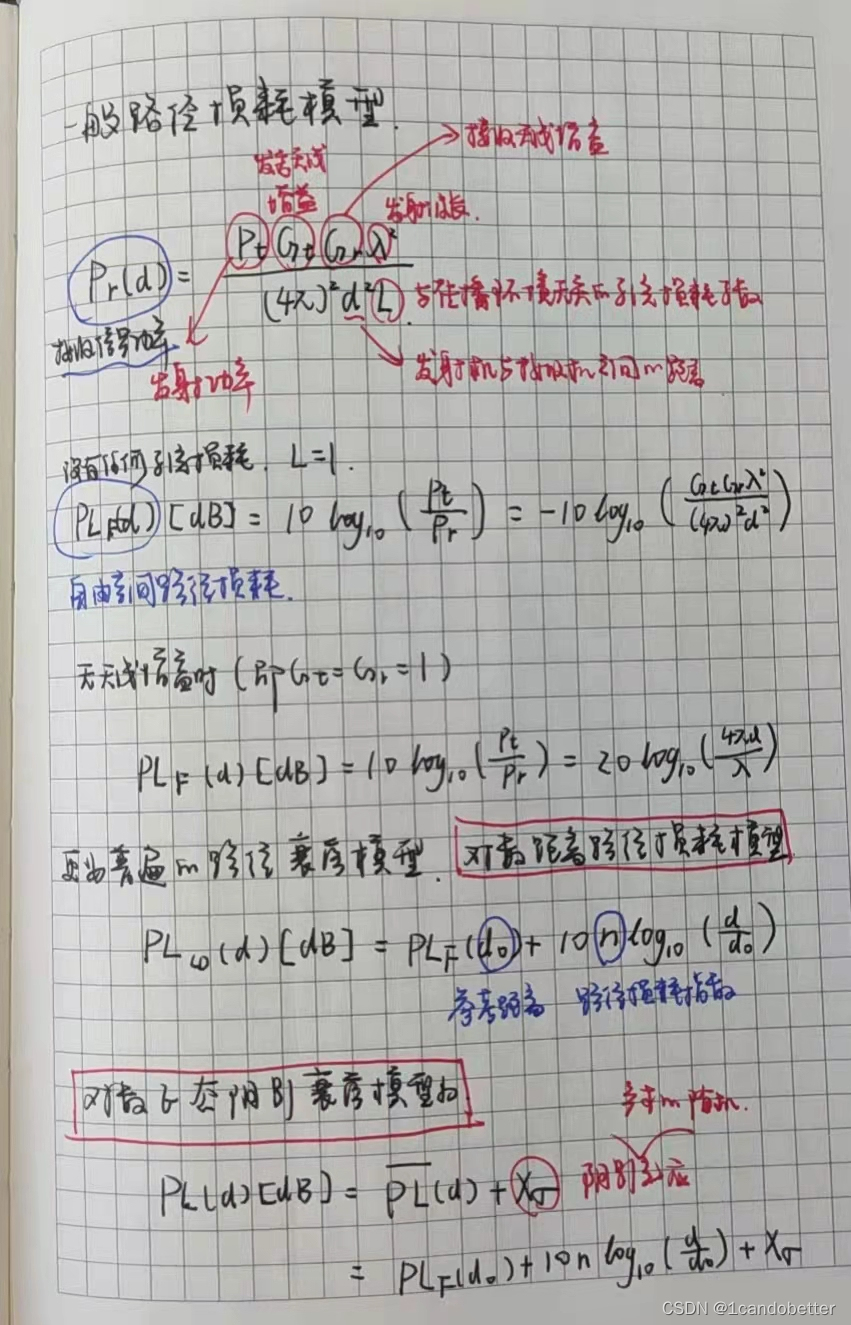 一般路径损耗模型.
接收天线增益
发射天线
增益
发射波长.
Pr(d) = PtGtGrλ² / (4π)²d²L
与传播环境无关的系统损耗系数
接收信号功率
发射功率
发射机与接收机之间的距离
没有任何系统损耗. L=1.
PLF(d) [dB] = 10 log₁₀ (Pt/Pr) = -10 log₁₀ (GtGrλ²/(4π)²d²)
自由空间路径损耗.
无天线增益时 (即Gt=Gr=1)
PLF(d)[dB] = 10 log₁₀ (Pt/Pr) = 20 log₁₀ (4πd/λ)
更为普遍的路径衰落模型. 对数距离路径损耗模型
PLLD(d)[dB] = PLF(d₀) + 10 n log₁₀ (d/d₀)
参考距离 路径损耗指数
对数正态阴影衰落模型为
PL(d)[dB] = P̅L̅(d) + Xσ 阴影效应
= PLF(d₀) + 10 n log₁₀ (d/d₀) + Xσ
CSDN @1candobetter